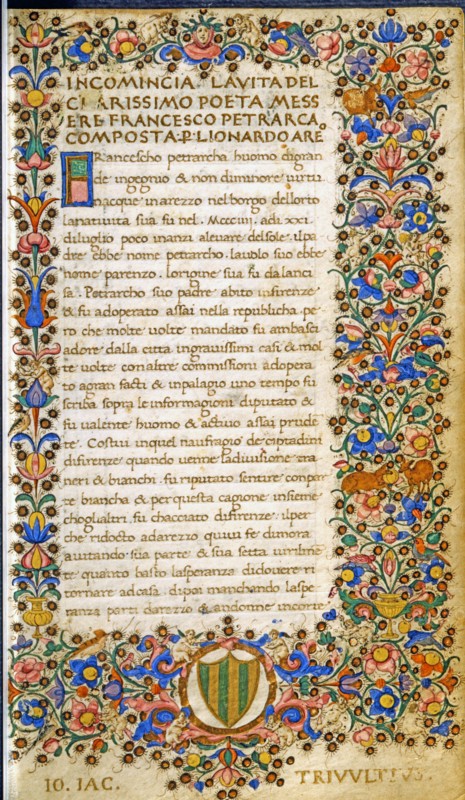 INCOMINCIA LAVITA DEL
CLARISSIMO POETA MESS
ERE FRANCESCO PETRARCA
COMPOSTA P LIONARDO ARE
Francescho petrarcha huomo digran
de ingegnio & non diminore virtu
nacque in arezzo nel borgo dellorto
la natiuita sua fu nel . Mccciiij . adi xxi .
diluglio poco inanzi aleuare delsole . ilpa
dre ebbe nome petrarcho . lauolo suo ebbe
nome parenzo . lorigine sua fu da lanci
sa . Petrarcho suo padre abito infirenze
& fu adoperato assai nella republicha pe
ro che molte uolte mandato fu ambasci
adore dalla citta ingrauissimi casi & mol
te uolte con altre commissioni adopera
to agran facti & inpalagio uno tempo fu
scriba sopra le informagioni diputato &
fu ualente huomo & actiuo assai prude
te . Costui inquel naufragio de ciptadini
difirenze quando uenne ladiuisione tra
neri & bianchi . fu riputato sentire conpar
te biancha & per questa cagione insieme
choglialtri fu chacciato difirenze . ilper
che ridocto adarezzo quiui fe dimora
aiutando sua parte & sua setta uirilme
te quanto basto lasperanza didouere ri
tornare adcasa . dipoi manchando laspe
ranza parti darezzo & andonne incorte
IO. IAC. TRIVULTIUS.